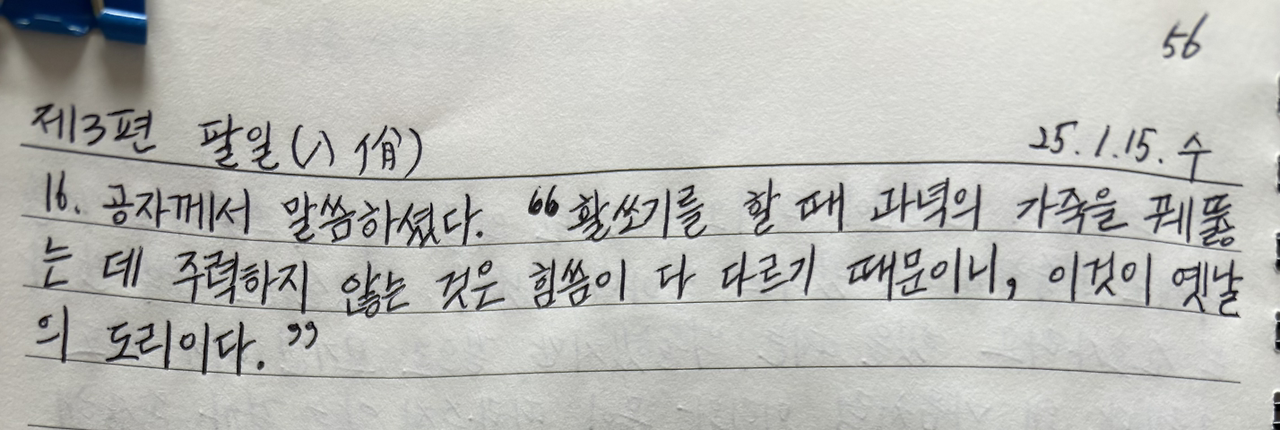 56
제3편 팔일(八佾) 25.1.15. 수
16. 공자께서 말씀하셨다. “활쏘기를 할 때 과녁의 가죽을 꿰뚫
는 데 주력하지 않는 것은 힘씀이 다 다르기 때문이니, 이것이 옛날
의 도리이다.”